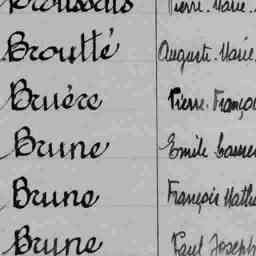 Broussais Pierre. Marie.
Broutté Auguste. Marie.
Bruère Pierre. Franço
Brune Emile
Brune François Math
Brune Paul Joseph